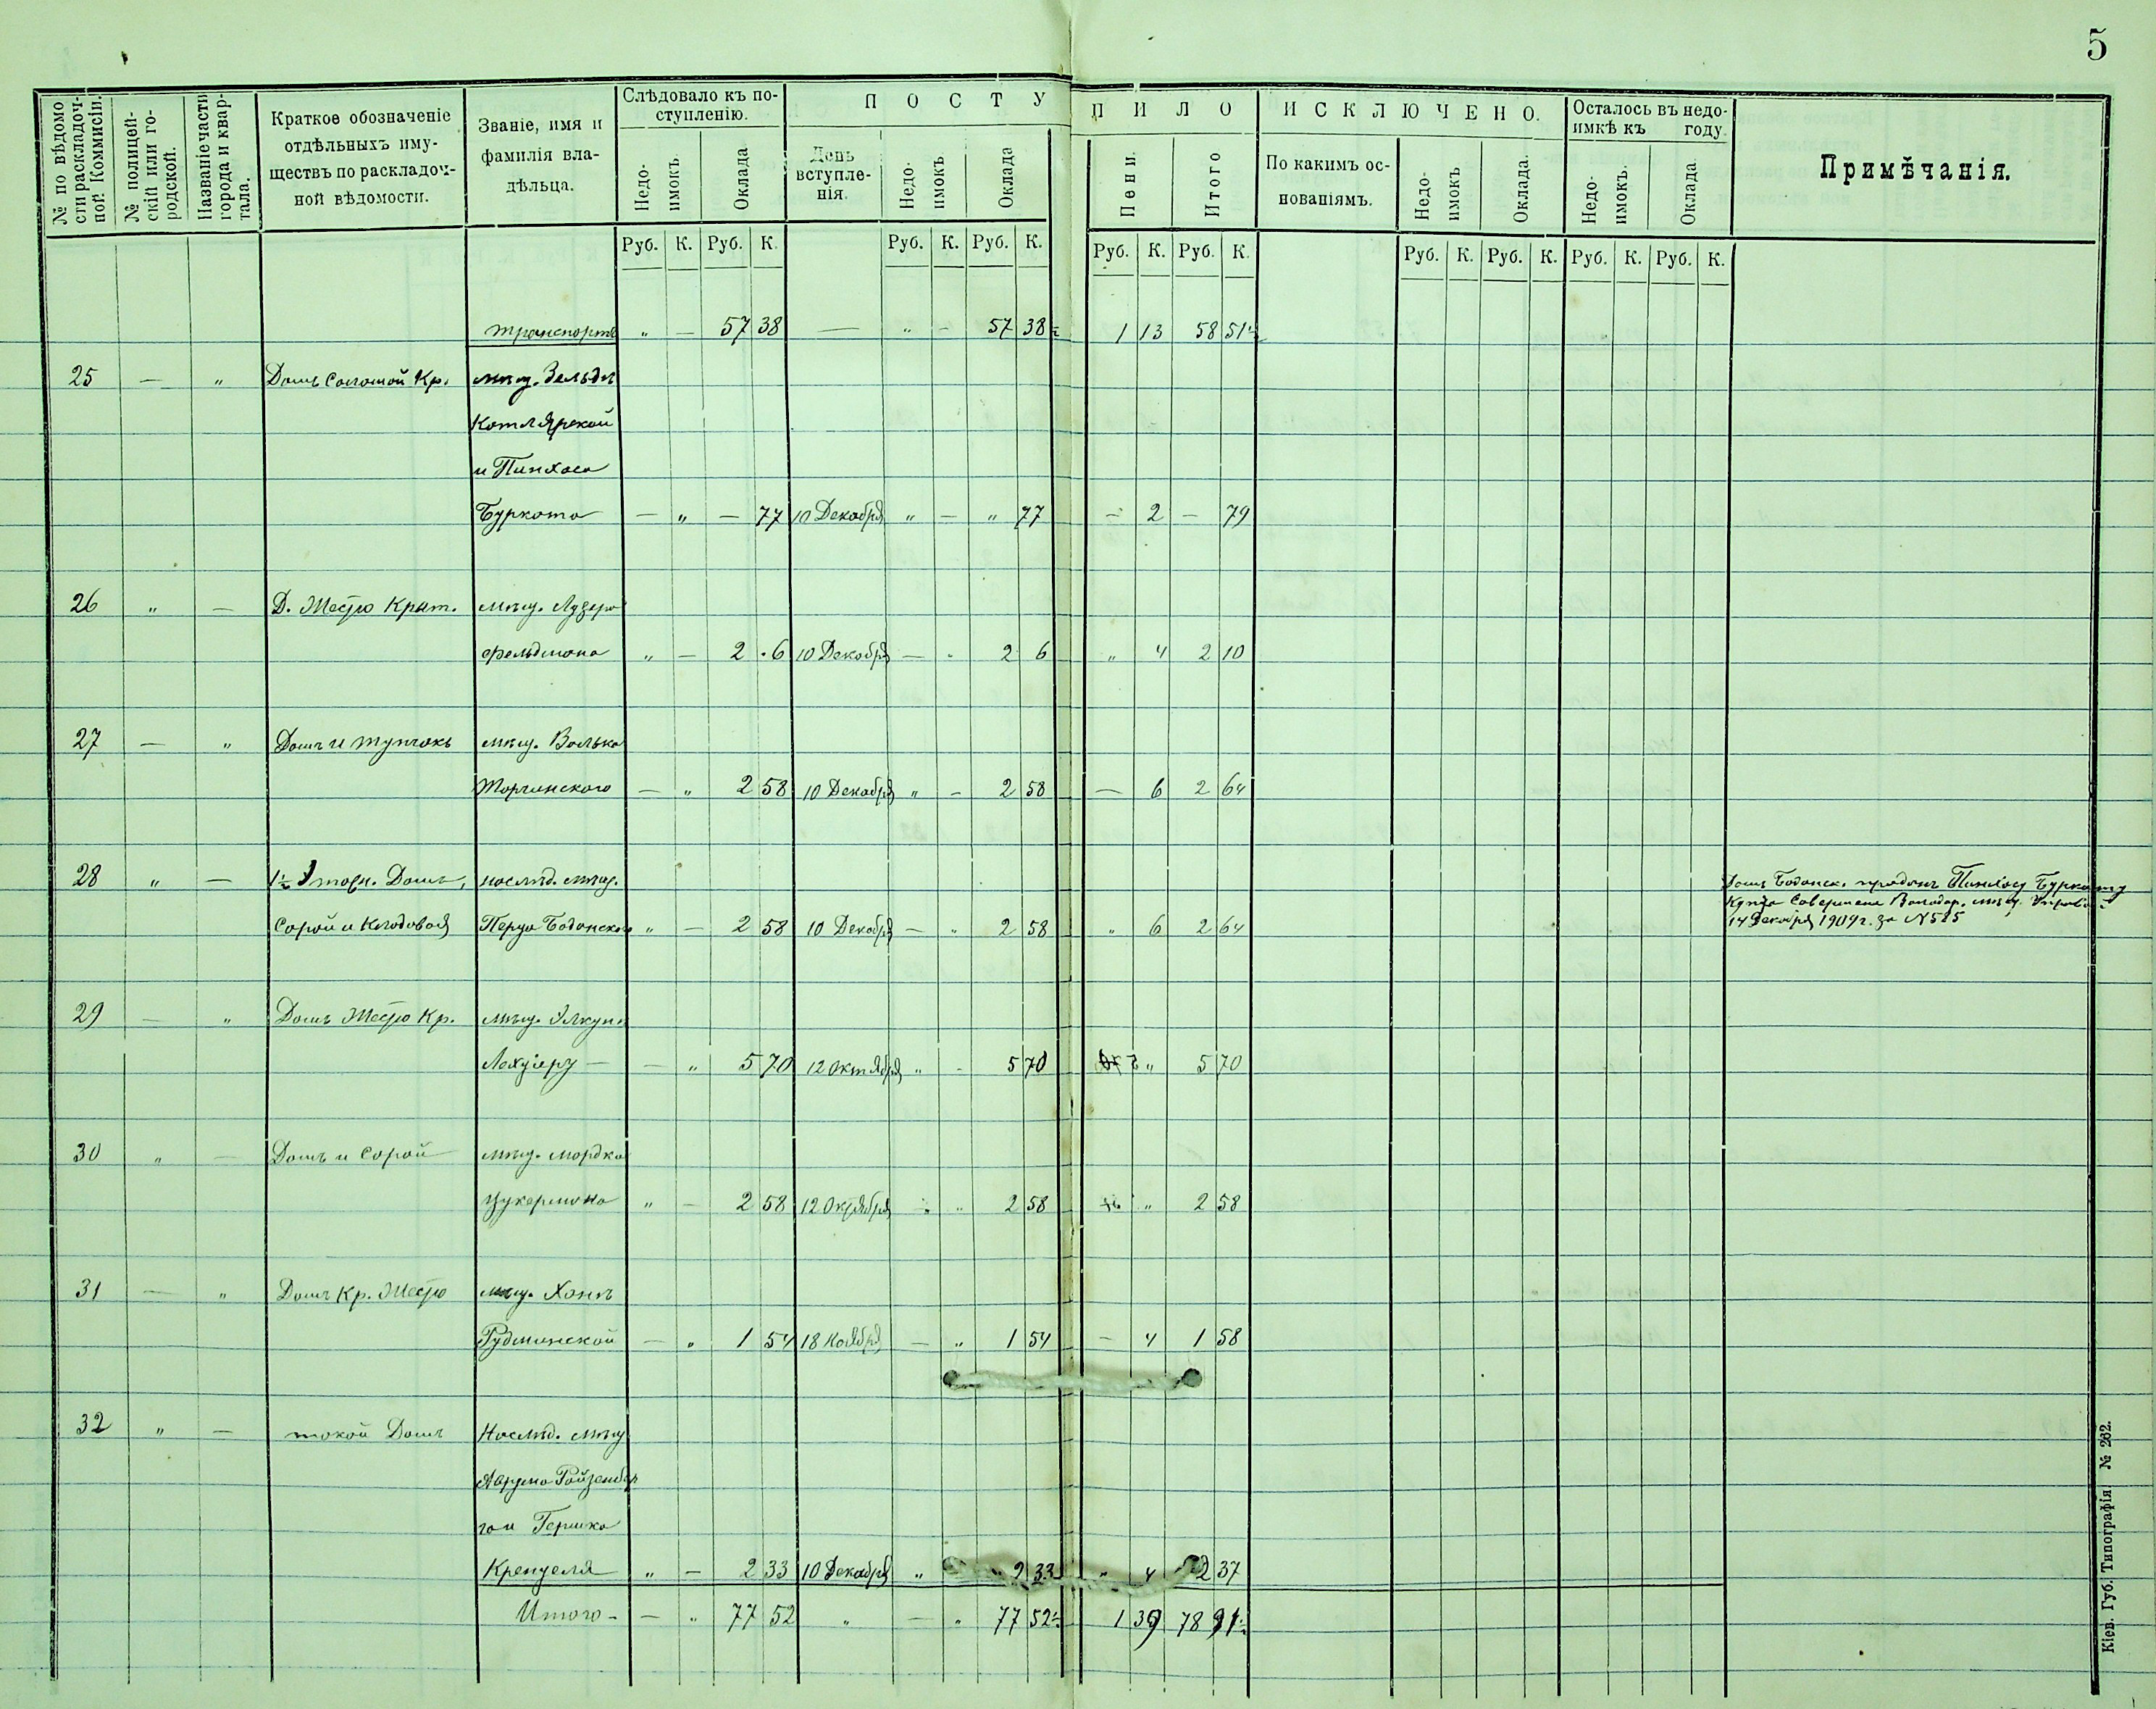 5
№ по вѣдомо
сти раскладоч-
ной Коммисіи.
№ полицей-
скій или го-
родской.
Названіе части
города и квар-
тала.
Краткое обозначеніе
отдѣльныхъ иму-
ществъ по раскладоч-
ной вѣдомости.
Званіе, имя и
фамилія вла-
дѣльца.
Слѣдовало къ по-
ступленію.
Недо-
имокъ.
Оклада
ПОСТУПИЛО
День
вступле-
нія.
Недо-
имокъ
Оклада
Пени.
Итого
ИСКЛЮЧЕНО.
По какимъ ос-
нованіямъ.
Недо-
имокъ
Оклада.
Осталось въ недо-
имкѣ къ году.
Недо-
имокъ.
Оклада.
Примѣчанія.
Руб. К. Руб. К. Руб. К. Руб. К. Руб. К. Руб. К. Руб. К. Руб. К. Руб. К. Руб. К.
транспортъ " — 57 38 — " — 57 38½ 1 13 58 51½
25 — " Домъ Соломой Кр. мѣщ. Зельдѣ
Котлярской
и Пинхоса
Буркота — " — 77 10 Декабря " — " 77 — 2 — 79
26 " — Д. Жесто Крыт. мѣщ. Лузера
Фельдмана " — 2 6 10 Декабря — " 2 6 " 4 2 10
27 — " Домъ и мѣщ. Волька
Торчинского — " 2 58 10 Декабря " — 2 58 — 6 2 64
28 " — 1½ Этажн. Домъ, наслѣд. мѣщ.
Сарай и Кладовая Боданского " — 2 58 10 Декабря — " 2 58 " 6 2 64
Домъ Боданск. проданъ Пинхосу Буркоту
Купча Совершена Володар. мѣщ. Управ.
14 Декабря 1909 г. за N 585
29 — " Домъ Жесто Кр. мѣщ.
— — " 5 70 12 Октября " — 5 70 " 5 70
30 " — Домъ и Сарай мѣщ. Мордка
Цукермана " — 2 58 12 Октября — " 2 58 " 2 58
31 — " Домъ Кр. Жесто мѣщ. Ханѣ
Рудминской — " 1 54 18 Ноября — " 1 54 — 4 1 58
32 " — такой Домъ Наслѣд. мѣщ
Аврума Ройзенбер
га и Гершка
Кренцеля " — 2 33 10 Декабря " 2 33 " 4 2 37
Итого — — " 77 52 " — " 77 52½ 1 39 78 91½
Кіев. Губ. Типографія № 262.